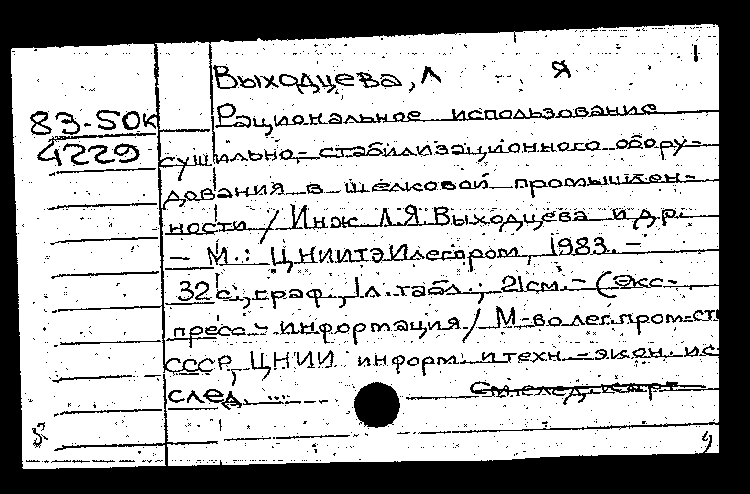 Выходцева, Л Я
83-50к Рациональное использование
4229 сушильно-стабилизационного обору-
дования в шёлковой промышлен-
ности / Инж Л.Я. Выходцева и др.
- М.: ЦНИИТЭИлегпром, 1983. -
32 с., граф., 1 л. табл.; 21 см. - (Экс-
пресс - информация / М-во лег. пром-сти
СССР, ЦНИИ информ. и техн. - экон. ис
след. ...
См. след. карт